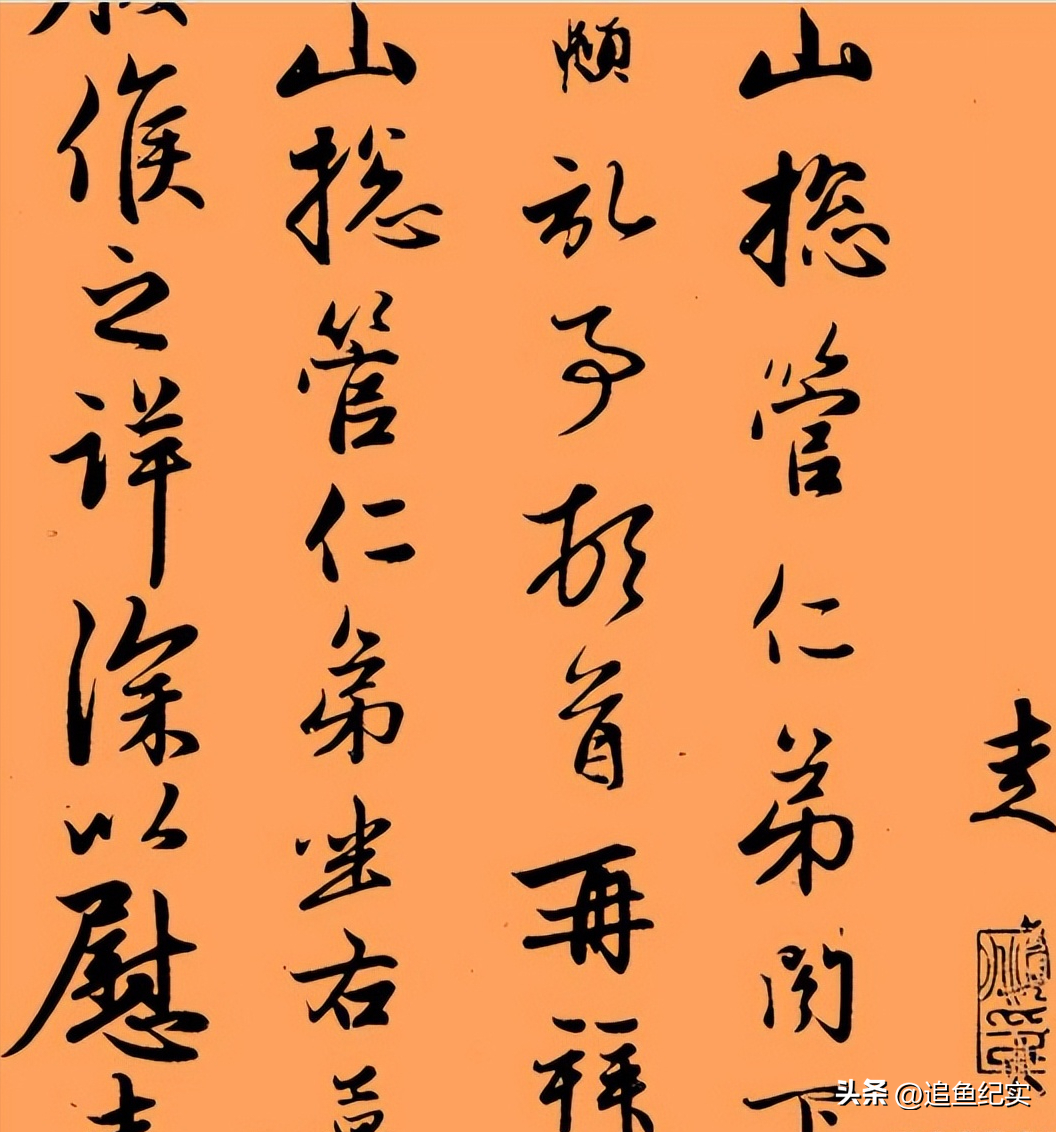 山總管仁弟閣下
頫記事頓首再拜
山總管仁弟坐右
候之詳深以慰
头条 @追鱼纪实